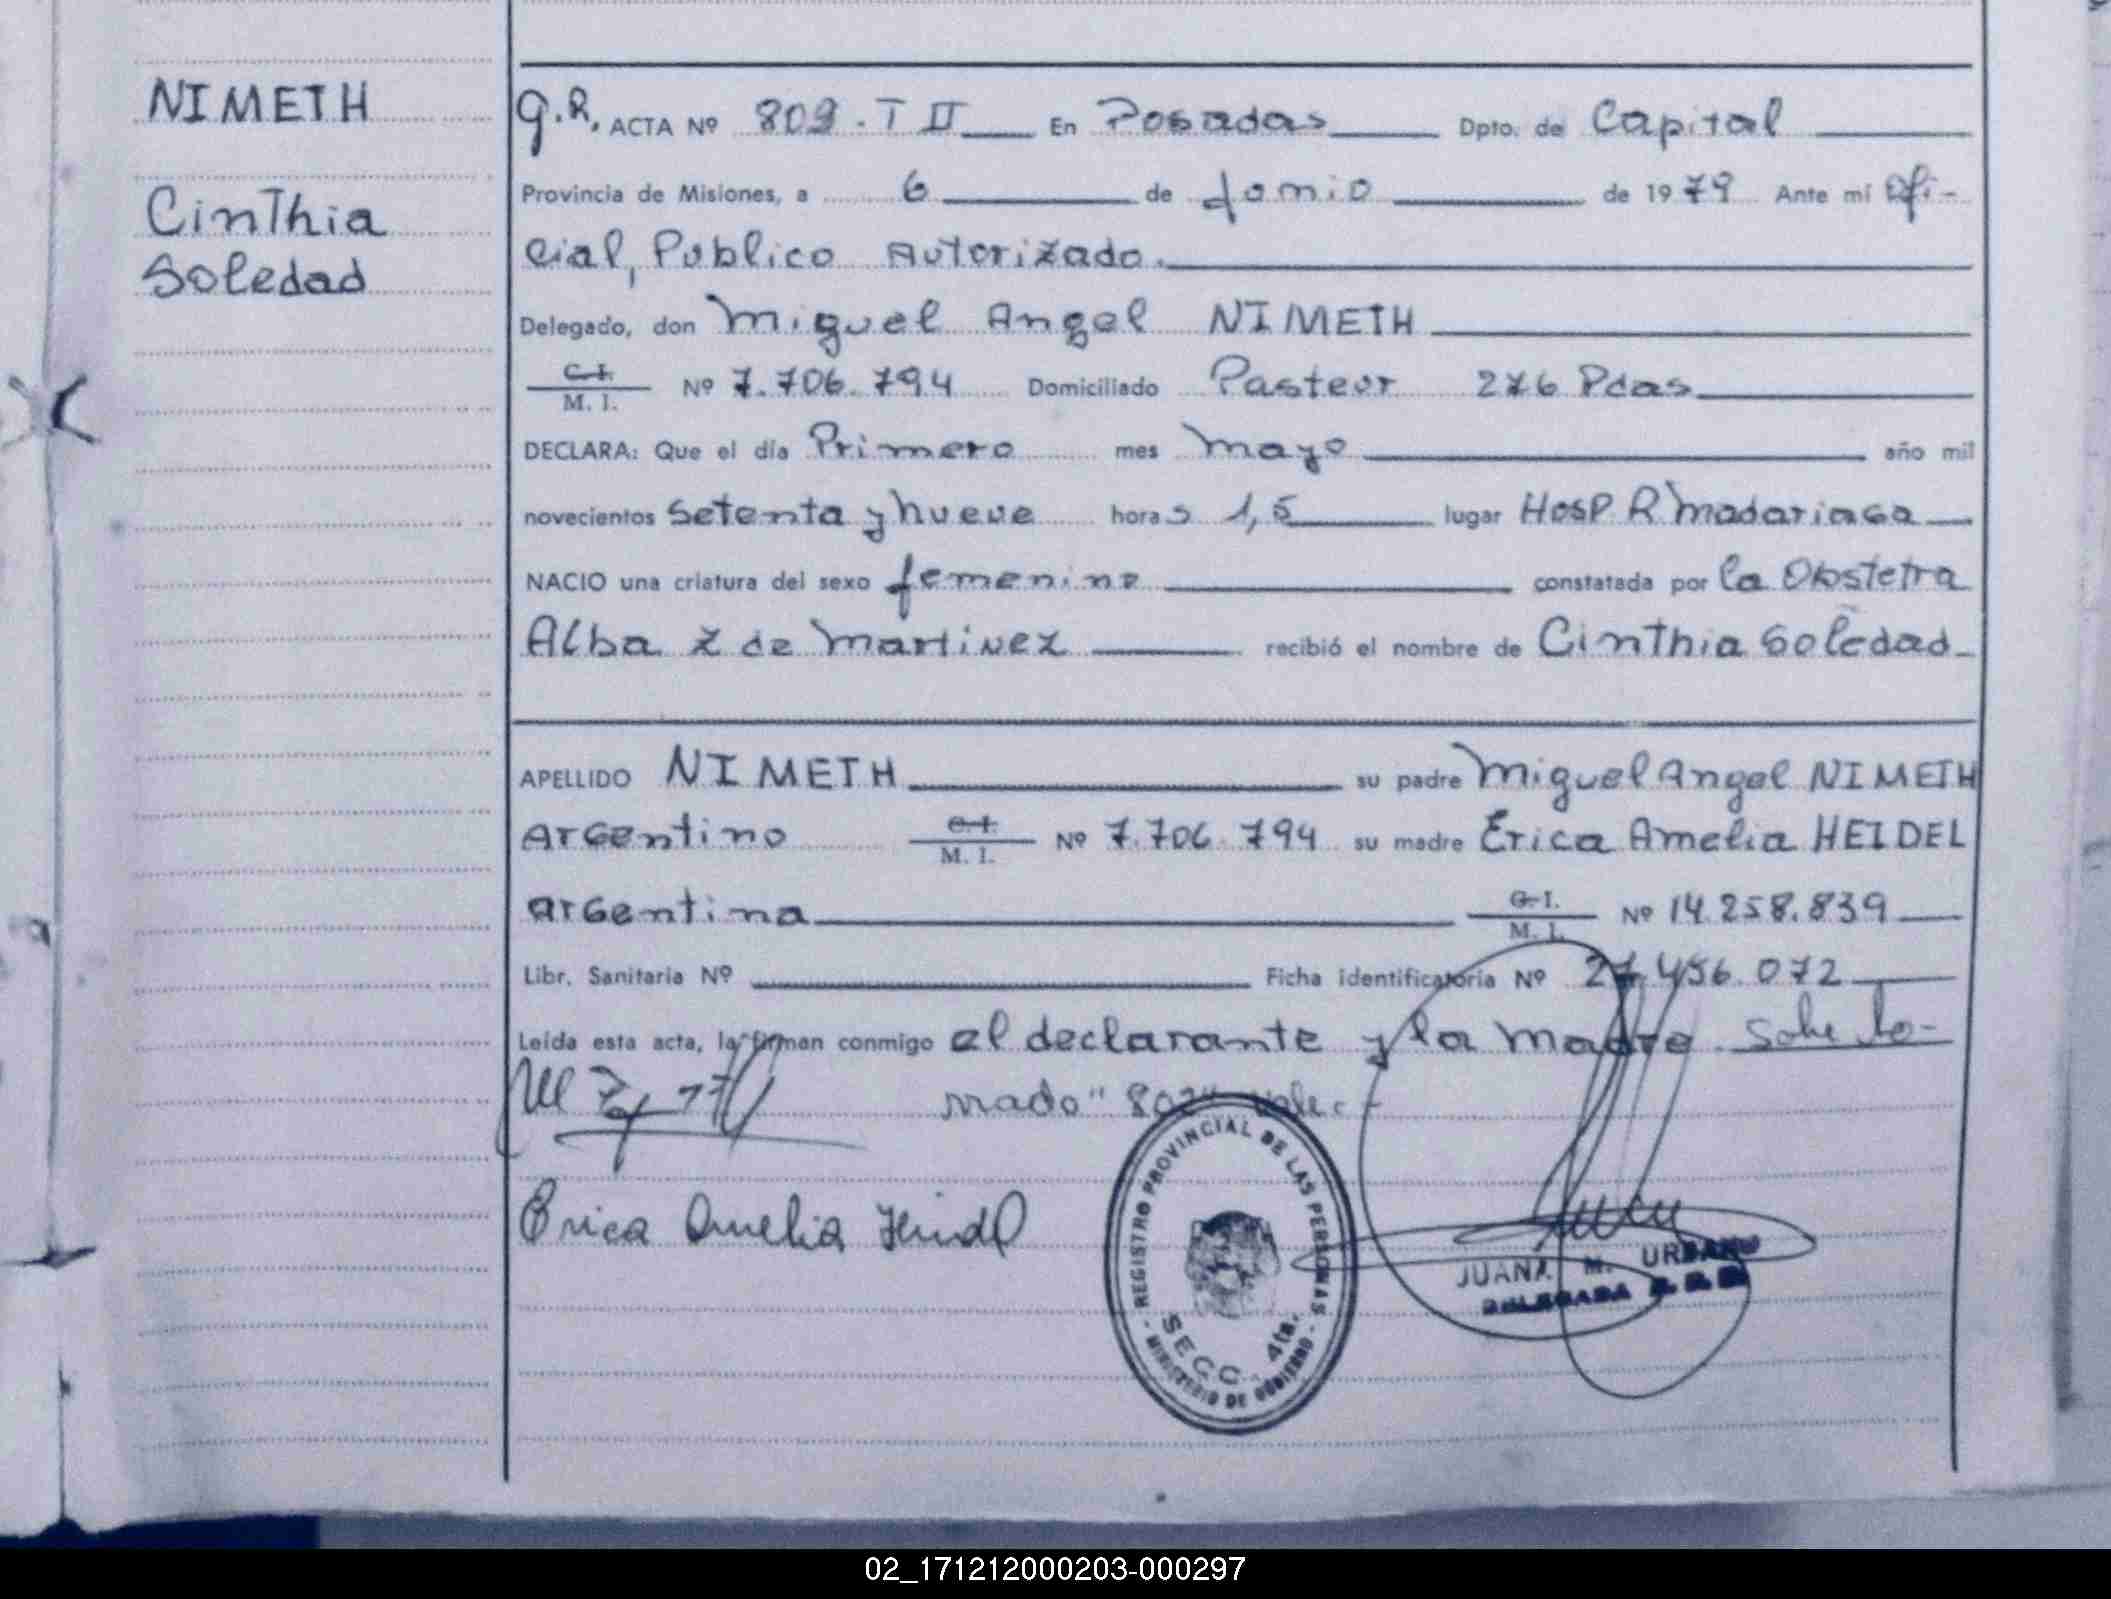 NIMETH
Cinthia
Soledad
G.R. ACTA Nº 809. T II En Posadas Dpto. de Capital
Provincia de Misiones, a 6 de Junio de 1979 Ante mí Ofi-
cial, Publico Autorizado.
Delegado, don Miguel Angel NIMETH
C. I. / M. I. Nº 7.706.794 Domiciliado Pasteur 276 Pdas
DECLARA: Que el día Primero mes mayo año mil
novecientos setenta y nueve horas 1,5 lugar Hosp R Madariaga
NACIO una criatura del sexo femenino constatada por la Obstetra
Alba Z de Martinez recibió el nombre de Cinthia Soledad
APELLIDO NIMETH su padre Miguel Angel NIMETH
Argentino C. I. / M. I. Nº 7.706.794 su madre Erica Amelia HEIDEL
argentina C. I. / M. I. Nº 14.258.839
Libr. Sanitaria Nº Ficha identificatoria Nº 27.456.072
Leída esta acta, la firman conmigo el declarante y la madre
Erica Amelia Heidel
REGISTRO PROVINCIAL DE LAS PERSONAS
SECC. 4ta.
MINISTERIO DE GOBIERNO
JUANA M. URBANO
DELEGADA
02_171212000203-000297